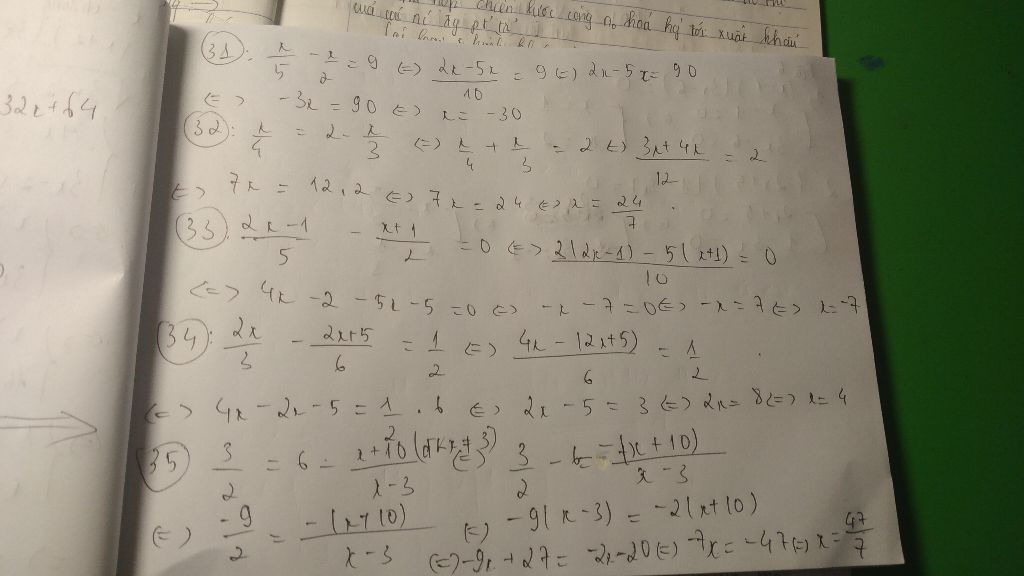 quá
xuất khẩu
32x+64
31: x/5 - x/2 = 9 <=> (2x-5x)/10 = 9 <=> 2x-5x = 90
<=> -3x = 90 <=> x = -30
32: x/4 = 2 - x/3 <=> x/4 + x/3 = 2 <=> (3x+4x)/12 = 2
<=> 7x = 12.2 <=> 7x = 24 <=> x = 24/7.
33 (2x-1)/5 - (x+1)/2 = 0 <=> (2(2x-1) - 5(x+1))/10 = 0
<=> 4x - 2 - 5x - 5 = 0 <=> -x - 7 = 0 <=> -x = 7 <=> x = -7
34: 2x/3 - (2x+5)/6 = 1/2 <=> (4x - (2x+5))/6 = 1/2
<=> 4x - 2x - 5 = 1/2 . 6 <=> 2x - 5 = 3 <=> 2x = 8 <=> x = 4
35 3/2 = 6 - (x+10)/(x-3) (đk x ≠ 3) <=> 3/2 - 6 = -(x+10)/(x-3)
<=> -9/2 = -(x+10)/(x-3) <=> -9(x-3) = -2(x+10)
<=> -9x + 27 = -2x - 20 <=> -7x = -47 <=> x = 47/7